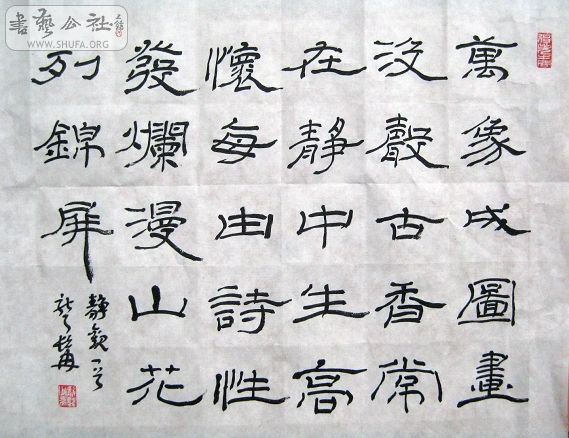 書藝公社
WWW.SHUFA.ORG
萬象成圖畫
没聲古香常
在静中生高
懷每由詩性
發爛漫山花
列錦屏
静觀一首